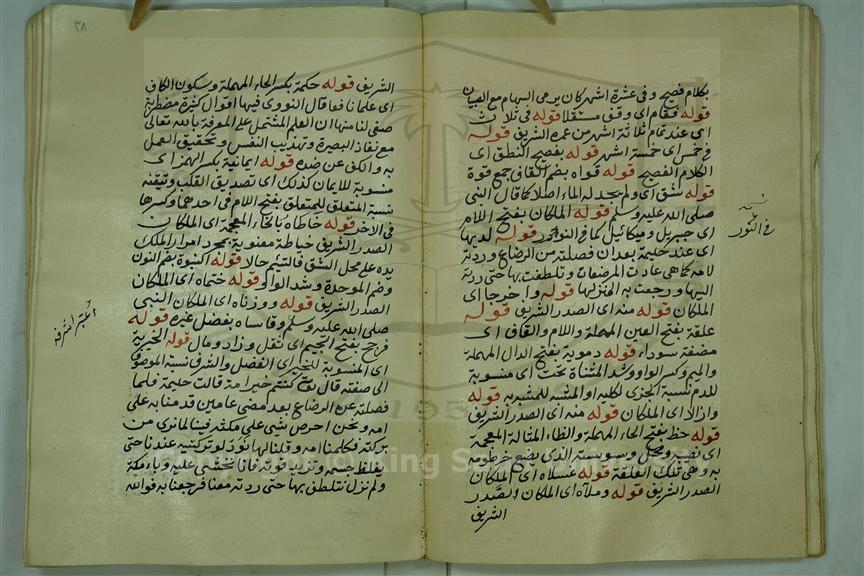 بكلام فصيح وفى عشرة اشهر كان يرمى السهام مع الصبيان
قوله فقام اى وقف مستقلا قوله فى ثلاث
اى عند تمام ثلاثة اشهر من عمره الشريف قوله
فى خمس اى خمسة اشهر قوله بفصيح النطق اى
الكلام الفصيح قوله قواه بضم القاف جمع قوة
قوله شق اى ولم يجد له الما اصلا كما قال النبى
صلى الله عليه وسلم قوله الملكان بفتح اللام
اى جبريل وميكائيل كما فى النور قوله لديها
اى عند حليمة بعد ان فصلته من الرضاع وردته
لامه كما هى عادت المرضعات وتلطفت بها حتى ردته
اليها ورجعت به الى منزلها قوله واخرجا اى
الملكان قوله منه اى الصدر الشريف قوله
علقة بفتح العين المهملة واللام والقاف اى
مضغة سوداء قوله دموية بفتح الدال المهملة
والميم وكسر الواو وشد المثناة تحت اى منسوبة
للدم نسبة الجزى لكليه او المشبه للمشبه به قوله
وازالا اى الملكان قوله منه اى الصدر الشريف
قوله حظ بفتح الحاء المهملة والظاء المشالة المعجمة
اى نصيبه ومحل وسوسته الذى يضع خرطومه
به وهى تلك العلقة قوله غسلاه اى الملكان
الصدر الشريف قوله وملآه اى الملكان الصدر
الشريف
فى النور
٣٨
الشريف قوله حكمة بكسر الحاء المهملة وسكون الكاف
اى علما نافعا قال النووى فيها اقوال كثيرة مضطربة
صفى لنا منها ان العلم المشتمل على المعرفة بالله تعالى
مع نفاذ البصيرة وتهذيب النفس وتحقيق العمل
به والكف عن ضده قوله ايمانية بكسر الهمز اى
منسوبة للايمان كذلك اى تصديق القلب وتيقنه
نسبة المتعلق للمتعلق بفتح اللام فى احدهما وكسرها
فى الاخر قوله خاطاه بالخاء المعجمة اى الملكان
الصدر الشريف خياطة معنوية بمجرد امرار الملك
يده على محل الشق فالتيم حالا قوله النبوة بضم النون
وضم الموحدة وشد الواو قوله ختماه اى الملكان
الصدر الشريف قوله ووزناه اى الملكان النبى
صلى الله عليه وسلم وقاساه بفضل غيره قوله
فرجح بفتح الجيم اى ثقل وزاد ومال قوله الخيرية
اى المنسوبة للخير اى الفضل والشرف نسبة الموصوف
الى صفته قال تعالى كنتم خير امة قالت حليمة فلما
فصلته عن الرضاع بعد مضى عامين قدمنا به على
امه ونحن احرص شى على مكثه فينا لما نرى من
بركته فكلمنا امه وقلنا لها نود لو تركتيه عندنا حتى
يغلظ جسمه وتزيد قوته فانا نخشى عليه وباء مكة
ولم نزل نتلطف بها حتى ردته معنا فرجعنا به فوالله